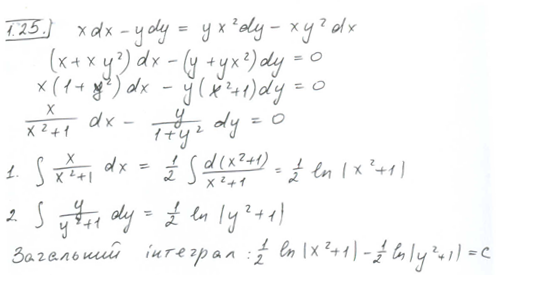 1.25. x dx - y dy = y x² dy - x y² dx
(x + x y²) dx - (y + y x²) dy = 0
x (1 + y²) dx - y (x² + 1) dy = 0
x/(x² + 1) dx - y/(1 + y²) dy = 0
1. ∫ x/(x² + 1) dx = 1/2 ∫ d(x² + 1)/(x² + 1) = 1/2 ln |x² + 1|
2. ∫ y/(y² + 1) dy = 1/2 ln |y² + 1|
Загальний інтеграл : 1/2 ln |x² + 1| - 1/2 ln |y² + 1| = c